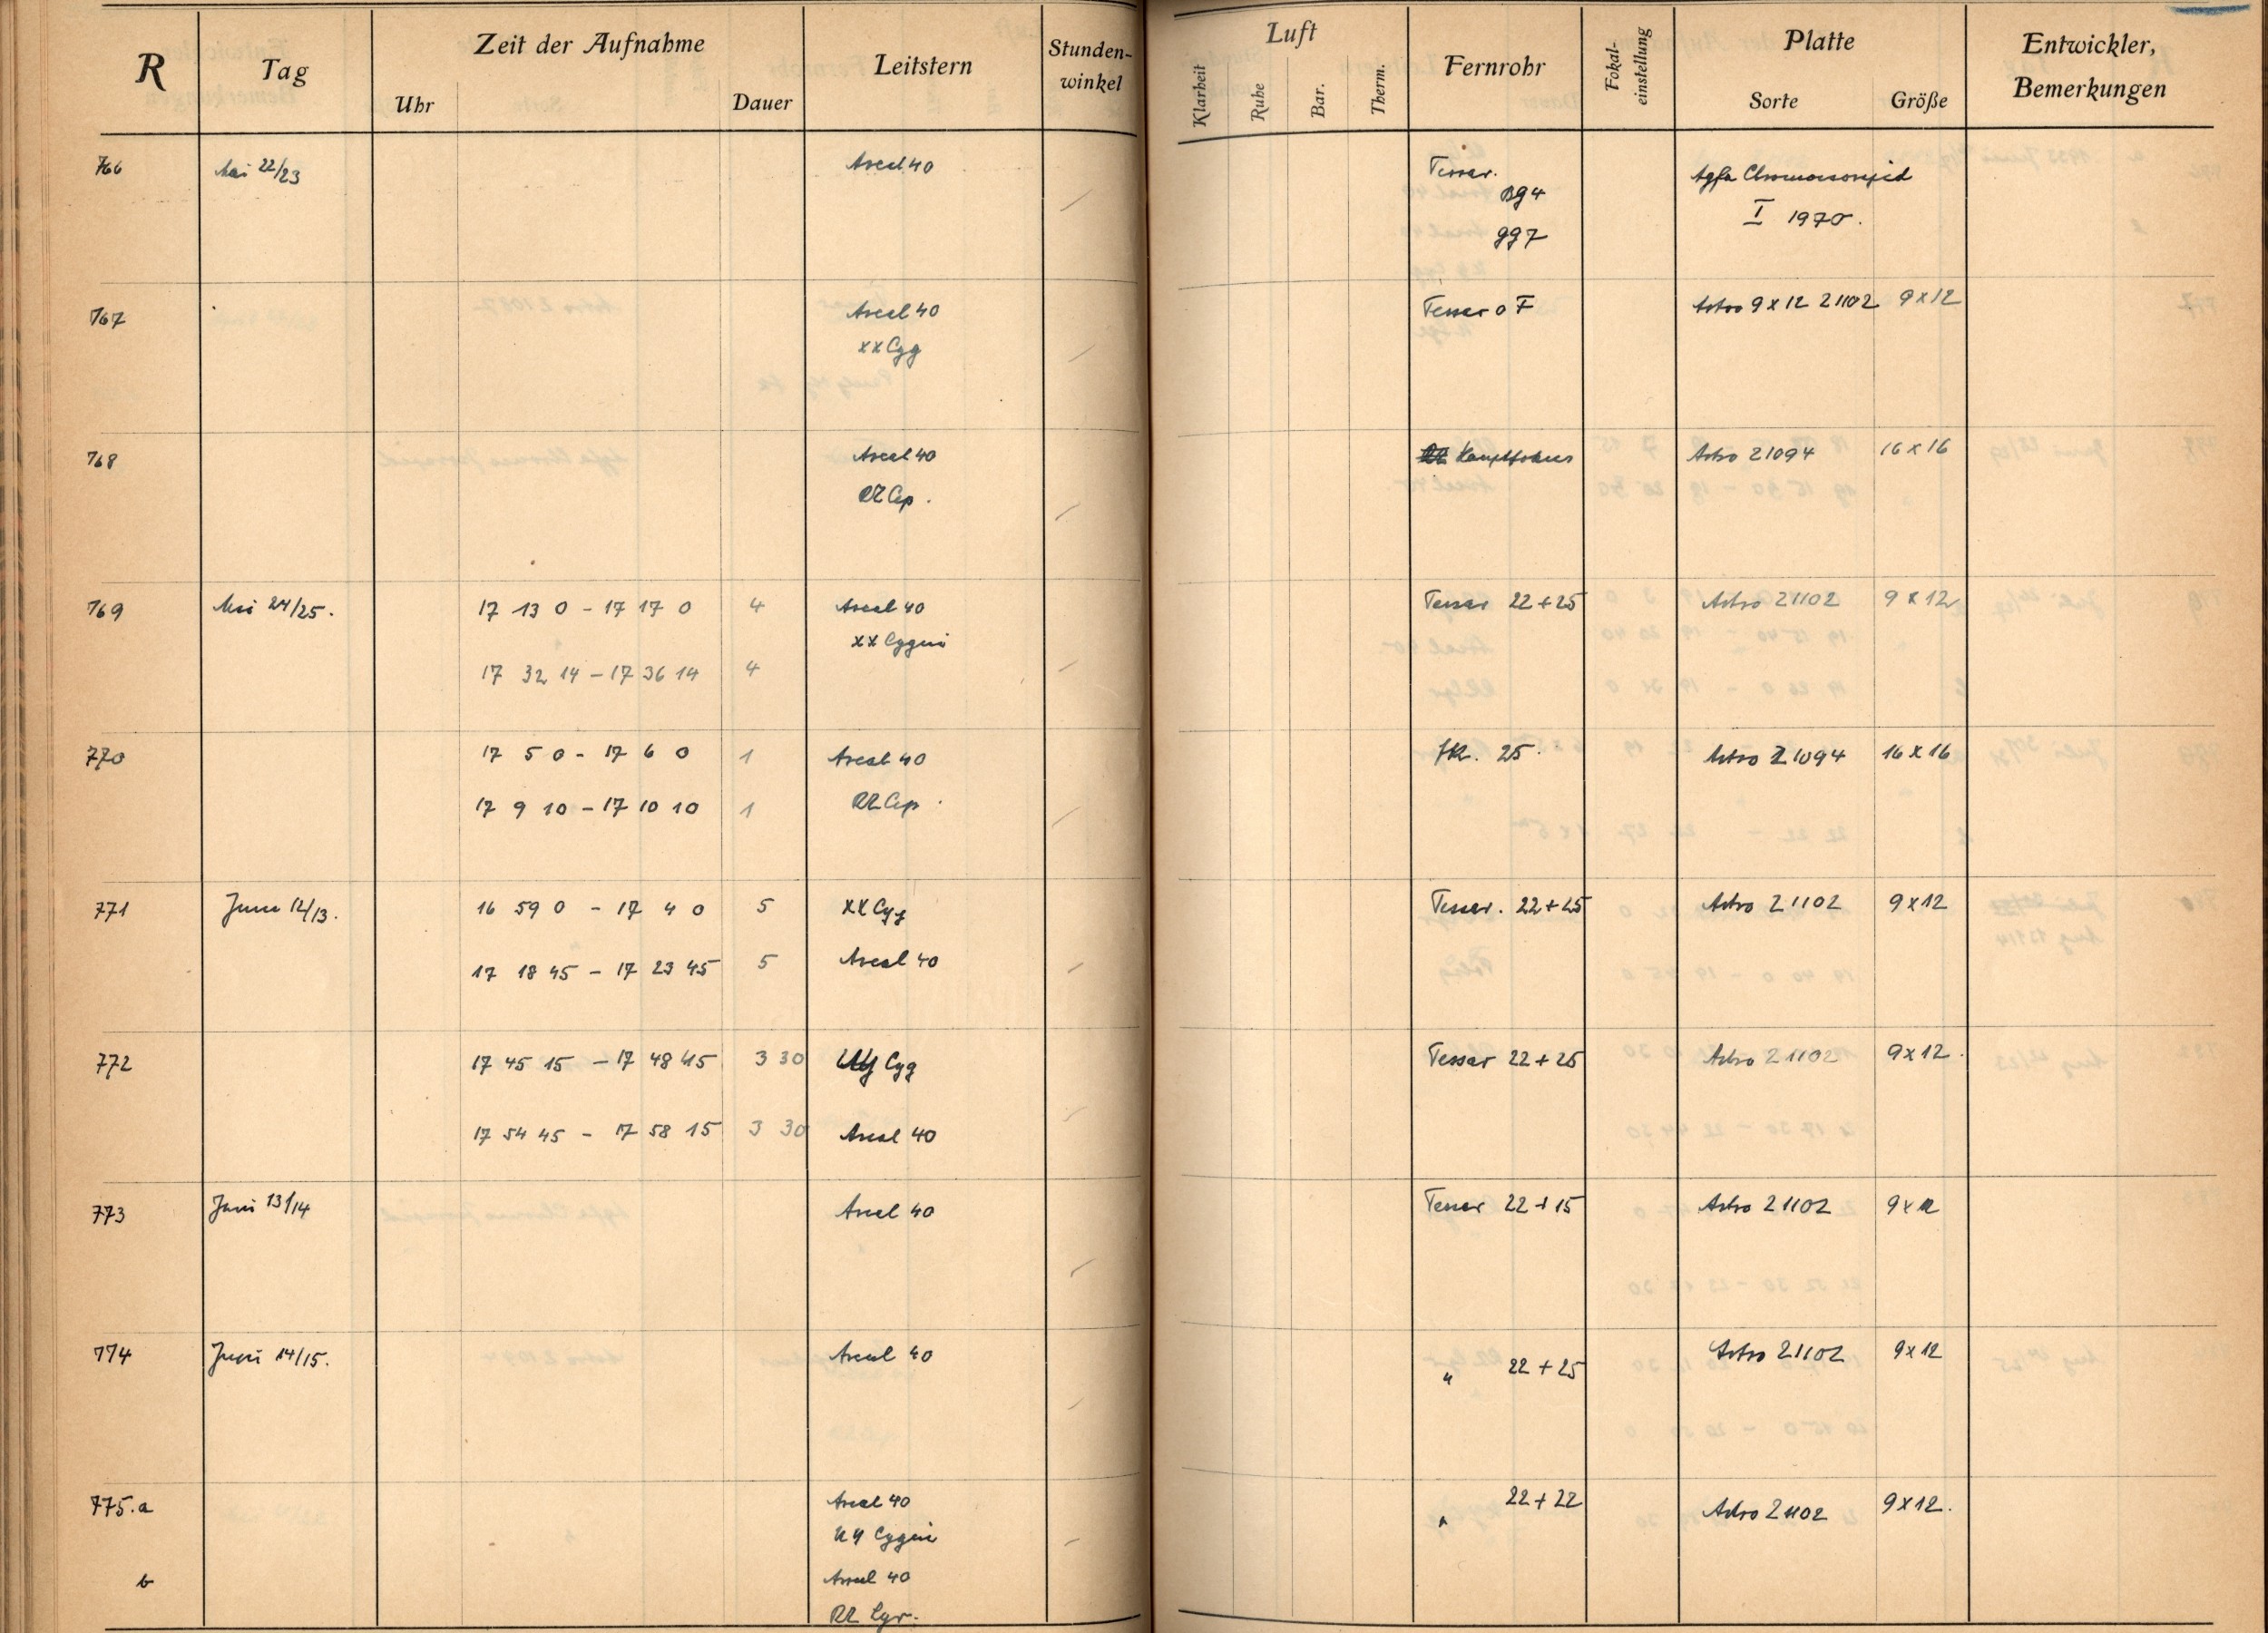 R Tag Zeit der Aufnahme Leitstern Stunden-winkel Luft Fernrohr Fokal-einstellung Platte Entwickler, Bemerkungen
Uhr Dauer Klarheit Ruhe Bar. Therm. Sorte Größe
766 Mai 22/23 Areal 40 Tessar. Agfa
BG4 I 1970.
gg7
767 Areal 40 Tessar o F Astro 9x12 21102 9x12
XX Cyg
768 Areal 40 Hauptfokus Astro 21094 16x16
RZ Cep.
769 Mai 24/25. 17 13 0 - 17 17 0 4 Areal 40 Tessar 22+25 Astro 21102 9x12
XX Cygni
17 32 14 - 17 36 14 4
770 17 5 0 - 17 6 0 1 Areal 40 25. Astro 21094 16x16
17 9 10 - 17 10 10 1 RZ Cep.
771 Juni 12/13. 16 59 0 - 17 4 0 5 XX Cyg Tessar. 22+25 Astro 21102 9x12
17 18 45 - 17 23 45 5 Areal 40
772 17 45 15 - 17 48 45 3 30 Cyg Tessar 22+25 Astro 21102 9x12.
17 54 45 - 17 58 15 3 30 Areal 40
773 Juni 13/14 Areal 40 Tessar 22+15 Astro 21102 9x12
774 Juni 14/15. Areal 40 " 22+25 Astro 21102 9x12
775.a Areal 40 " 22+22 Astro 21102 9x12.
Cygni
b Areal 40
RR Lyr.